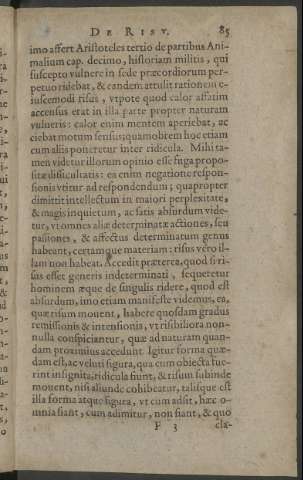 DE RISV. 85
imo affert Aristoteles tertio de partibus Ani-
malium cap. decimo, historiam militis, qui
suscepto vulnere in sede præcordiorum per-
petuo ridebat, & eandem attulit rationem e-
iuscemodi risus, vtpote quod calor affatim
accensus erat in illa parte propter naturam
vulneris: calor enim mentem aperiebat, ac
ciebat motum sensus; quamobrem hoc etiam
cum aliis poneretur inter ridicula. Mihi ta-
men videtur illorum opinio esse fuga propo-
sitæ difficultatis: ea enim negatione respon-
sionis vtitur ad respondendum; quapropter
dimittit intellectum in maiori perplexitate,
& magis inquietum, ac satis absurdum vide-
tur, vt omnes aliæ determinatæ actiones, seu
passiones, & affectus determinatum genus
habeant, certamque materiam: risus vero il-
lam non habeat. Accedit præterea, quod si ri-
sus esset generis indeterminati, sequeretur
hominem æque de singulis ridere, quod est
absurdum, imo etiam manifeste videmus, ea,
quæ risum mouent, habere quosdam gradus
remissionis & intensionis, vt risibiliora non-
nulla conspiciantur, quæ ad naturam quan-
dam proximius accedunt. Igitur forma quæ-
dam est, ac veluti figura, qua cum obiecta fue-
rint insignita, ridicula fiunt, & risum subinde
mouent, nisi aliunde cohibeatur, talisque est
illa forma atque figura, vt cum adsit, hæc o-
mnia fiant, cum adimitur, non fiant, & quo
F 3 cla-